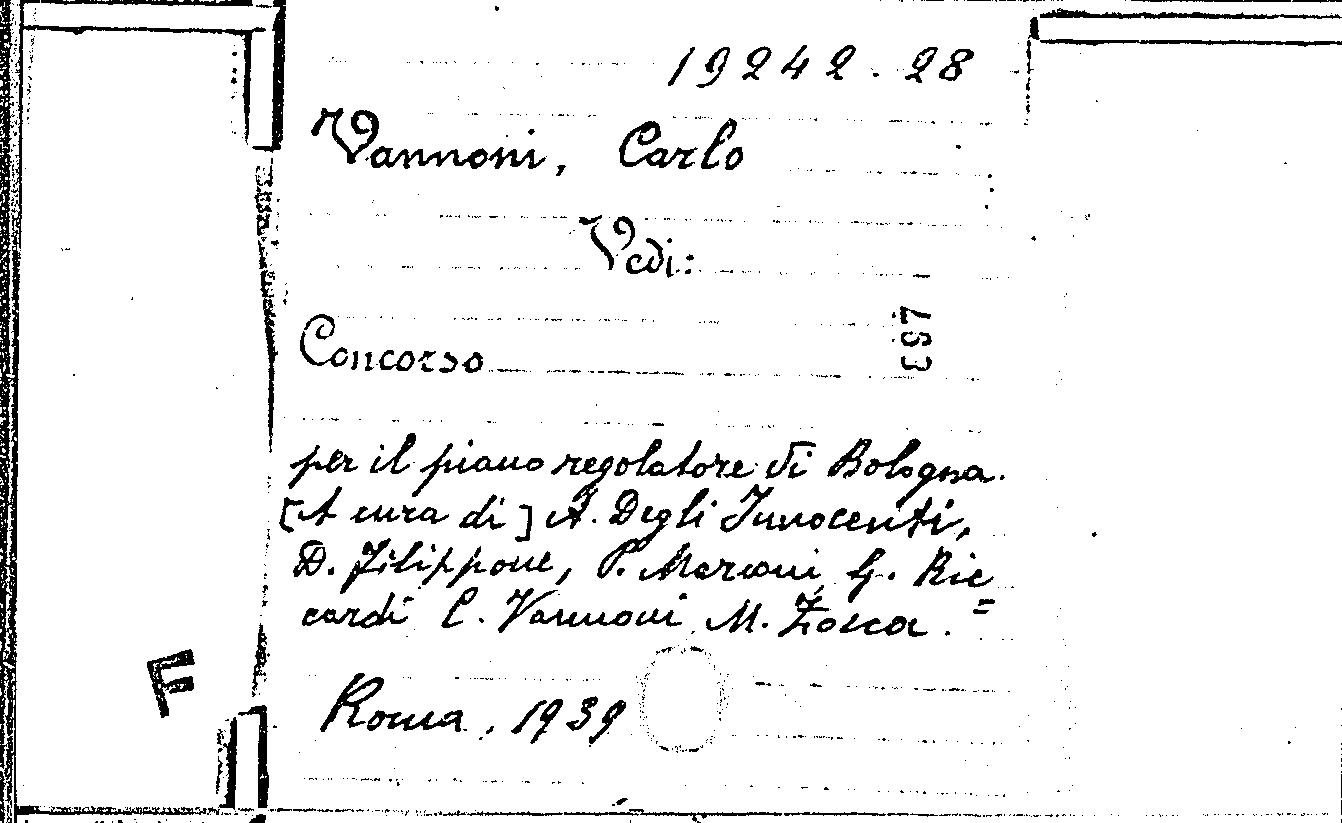 19242.28
Vannoni, Carlo
Vedi:
Concorso
E97
per il piano regolatore di Bologna.
[A cura di] A. Degli Innocenti,
D. Filippone, P. Marconi, G. Ric=
cardi C. Vannoni M. Zocca.
Roma, 1939
F